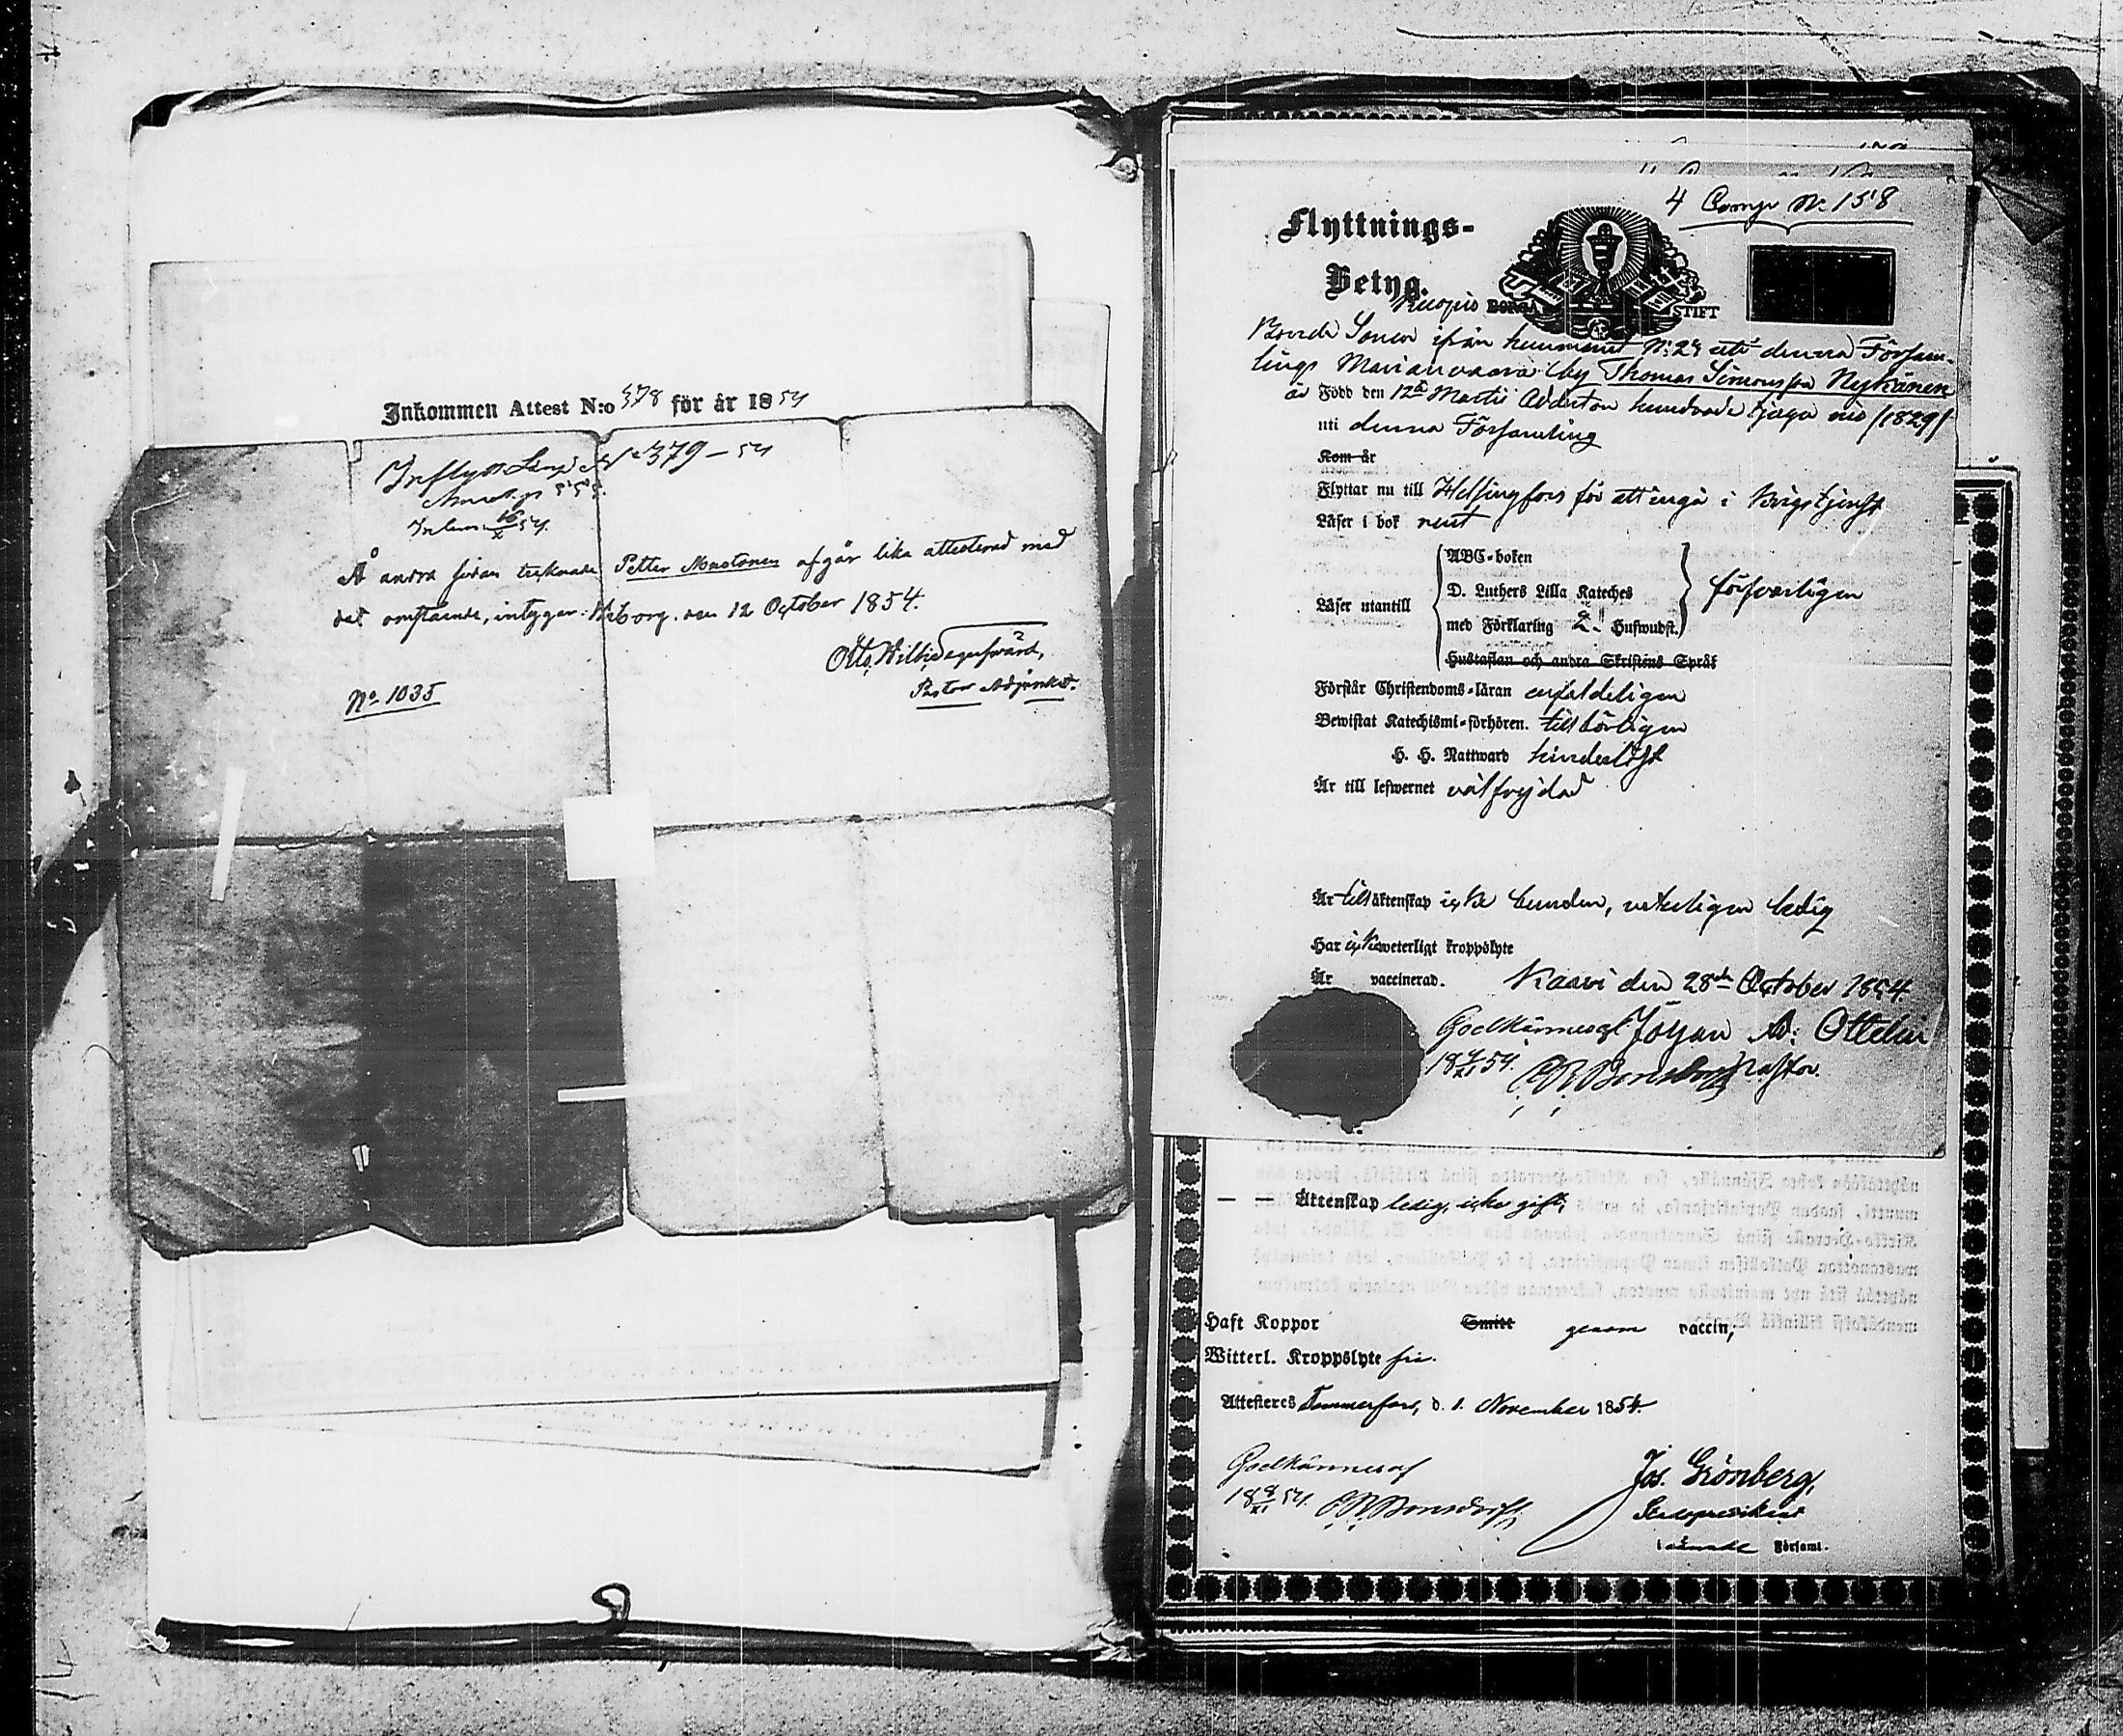 Inkommen Attest N:o 378 för år 1854
N:o 379 – 54
Inlem 16/X 54.
Å andra sidan tecknade Petter Mustonen afgår lika attesterad med
det omstående, intygar: Wiborg den 12 October 1854.
Otto Wilh:
Pastors Adjunkt.
No 1035
4 Comp No 158
Flyttnings-
Betyg.
Kuopio STIFT
Bonde Sonen ifrån hemmanet No 29 uti denna Försam-
lings Marianvaara by Thomas Simonsson Nykänen
är Född den 12te Martii Aderton hundrade tjugu nio (1829)
uti denna Församling
Kom år
Flyttar nu till Helsingfors för att ingå i Krigstjenst
Läser i bok rent
ABC-boken
D. Luthers Lilla Kateches
Läser utantill försvarligen
med Förklaring 2. Hufwudst.
Hustaflan och andra Skriftens Språk
Förstår Christendoms-läran enfaldeligen
Bewistat Katechismi-förhören. tillbörligen
H. H. Nattward hinderslöst
Är till lefwernet välfrejdad
Är till äktenskap icke bunden, veterligen ledig
Har icke weterligt kroppslyte
Är vaccinerad. Kaavi den 28de October 1854
Godkännes af Johan Ad: Ottelin
18 XI 54. Pastor.
Äktenskap ledig, icke gift,
Haft Koppor Smitt genom vaccin,
Witterl. Kroppslyte fri.
Attesteres Tammerfors, d. 1. November 1854.
Godkännes af
18 8/XI 54. Bonsdorff
Jos. Grönberg,
Stadspredikant
Församl.